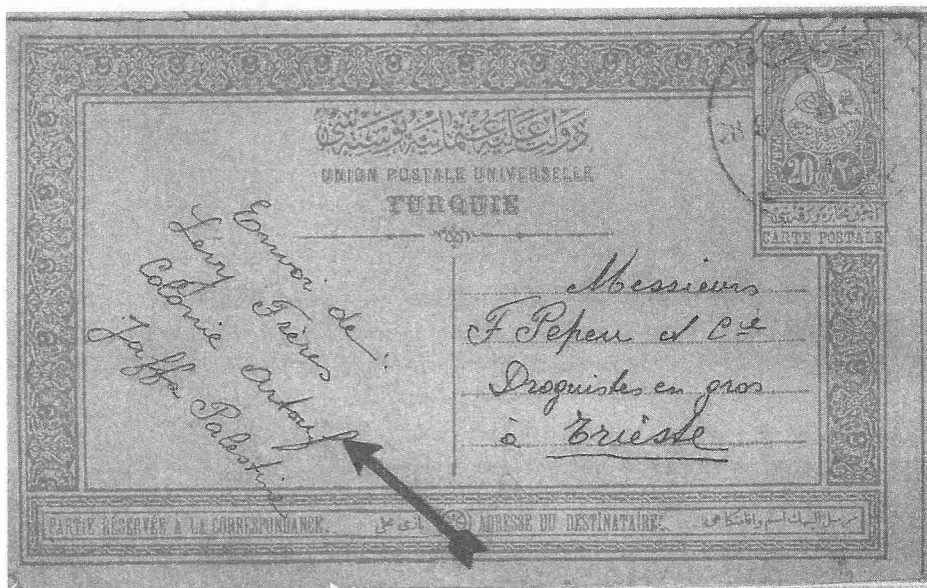 دولت علیه عثمانیه پوسته سی
UNION POSTALE UNIVERSELLE
TURQUIE
20
٢٠
CARTE POSTALE
Envoi de
Lévy Frères
Colonie artouf
Jaffa Palestine
Messieurs
F Pepeu et Cie
Droguistes en gros
à Trieste
PARTIE RÉSERVÉE A LA CORRESPONDANCE.
ADRESSE DU DESTINATAIRE.